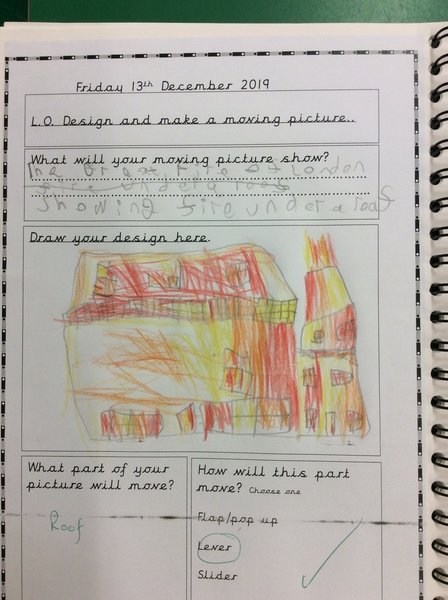 Friday 13th December 2019
L.O. Design and make a moving picture..
What will your moving picture show?
The Great Fire Of Londen
fire under a roof
Showing fire under a roof
Draw your design here.
What part of your
picture will move?
Roof
How will this part
move? Choose one
Flap/pop up
Lever
Slider